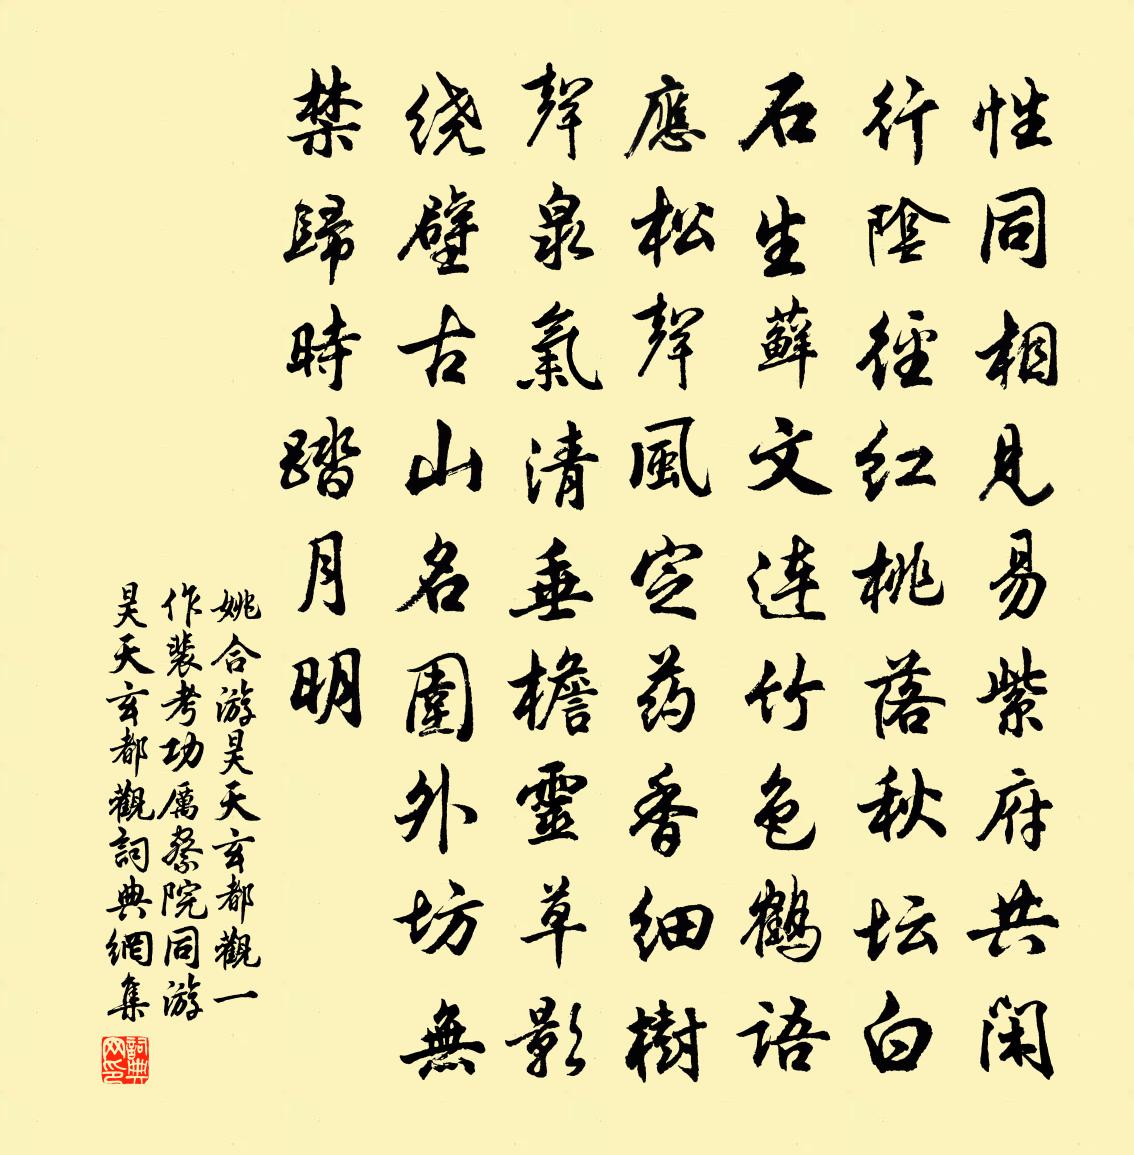 性同相見易紫府共閑
行陰徑红桃落秋坛白
石生蘚文連竹色鶴語
應松聲風定药香細樹
聲泉氣清垂檐靈草影
绕壁古山名圍外坊無
禁歸時踏月明
姚合游昊天玄都觀一
作裴考功厲察院同游
昊天玄都觀詞典網集
詞典网印